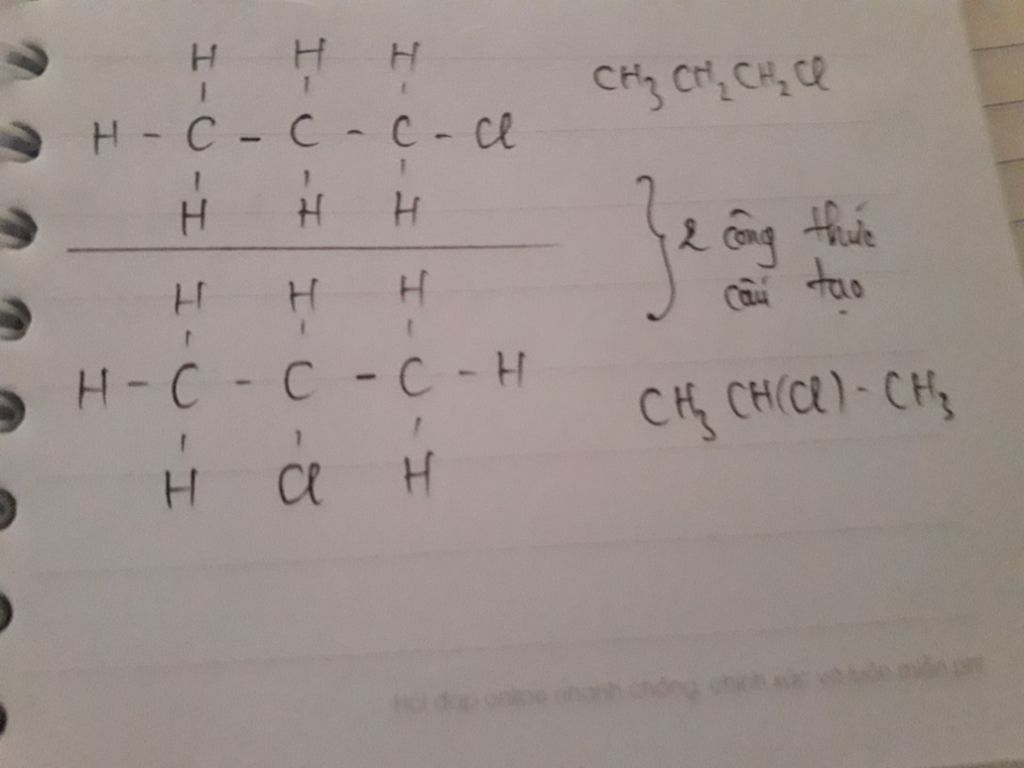 H H H
H - C - C - C - Cl
H H H
CH₃CH₂CH₂Cl
} 2 công thức
cấu tạo
H H H
H - C - C - C - H
H Cl H
CH₃ CH(Cl) - CH₃
Hỏi đáp online nhanh chóng, chính xác và luôn miễn phí